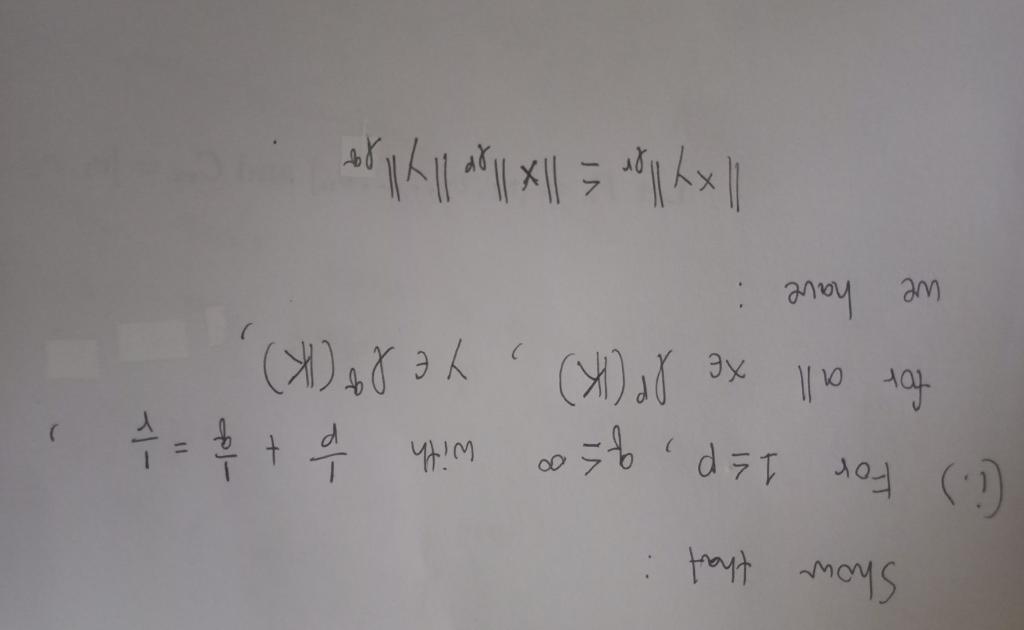 Show that :
(i.) For 1 ≤ p, q ≤ ∞ with 1/p + 1/q = 1/r ,
for all x ∈ ℓᵖ(𝕂) , y ∈ ℓ^q(𝕂) ,
we have :
‖xy‖ℓʳ ≤ ‖x‖ℓᵖ ‖y‖ℓ^q .